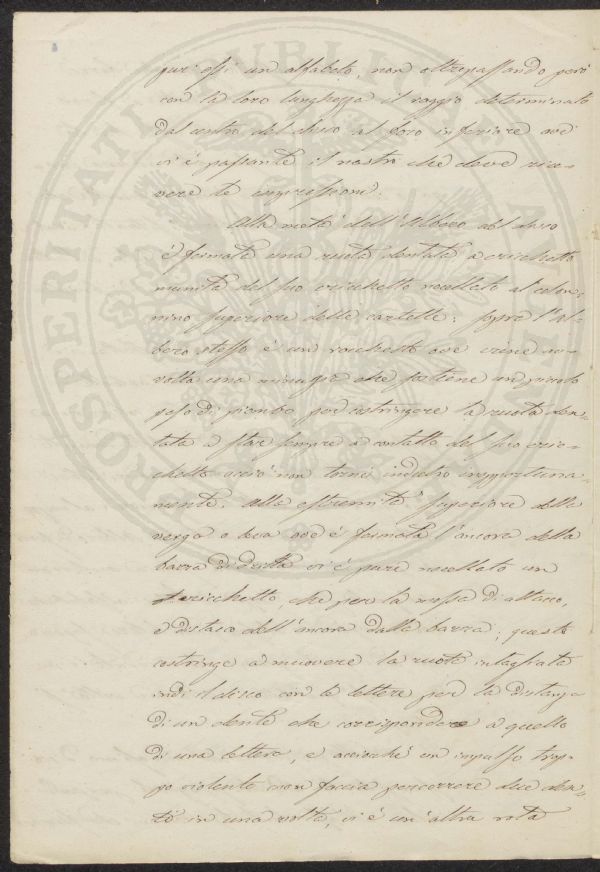 pur essi un alfabeto, non oltrepassando però
con la loro lunghezza il raggio determinato
dal centro del disco al foro inferiore ove
vi è passante il nastro che deve rice-
vere le impressioni.
Alla metà dell'Albero del disco
è fermata una ruota dentata a cricchetto
munita del suo cricchetto nocellato al colon-
nino superiore delle cartelle; sopra l'al-
bero stesso è un rocchetto ove viene av-
volta una minugia che sostiene un piccolo
peso di piombo per costringere la ruota den-
tata a stare sempre a contatto del suo cric-
chetto acciò non torni indietro inopportuna-
mente. Alla estremità superiore della
verga o leva ove è fermata l'ancora della
barra di destra vi è pure nocellato un
cricchetto, che per la mossa di attacco,
e distacco dell'ancora dalla barra; questo
costringe a muovere la ruota intagliata
indi il disco con le lettere per la distanza
di un dente che corrisponde a quello
di una lettera, e acciocché un impulso trop-
po violento non faccia percorrere due den-
ti in una volta, vi è un'altra rota
PROSPERITATI PUBLICAE AUGENDAE